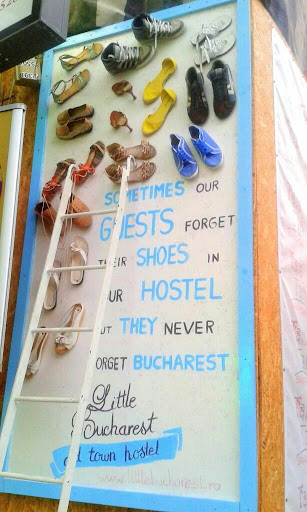 SOMETIMES OUR
GUESTS FORGET
THEIR SHOES IN
OUR HOSTEL
BUT THEY NEVER
FORGET BUCHAREST
Little
Bucharest
old town hostel
www.littlebucharest.ro